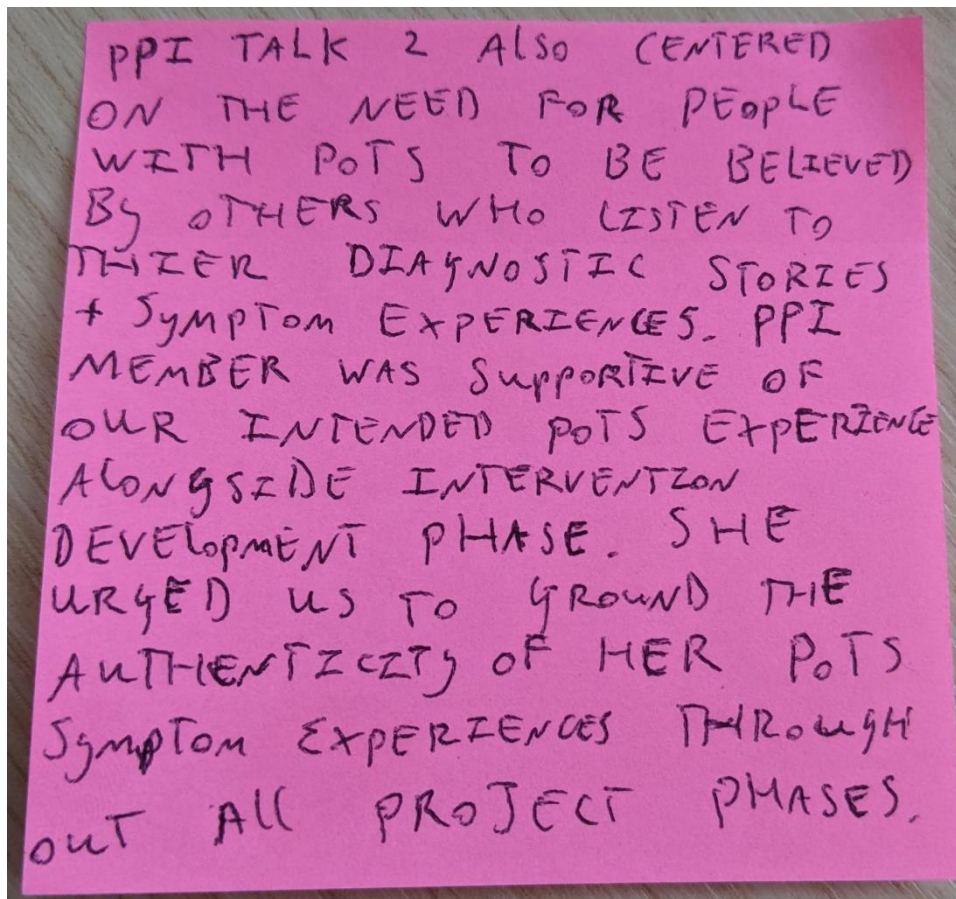 PPI TALK 2 Also CENTERED
ON THE NEED FOR PEOPLE
WITH POTS TO BE BELIEVED
By OTHERS WHO LISTEN TO
THIER DIAGNOSTIC STORIES
+ SYMPTOM EXPERIENCES. PPI
MEMBER WAS SUPPORTIVE OF
OUR INTENDED POTS EXPERIENCE
ALONGSIDE INTERVENTION
DEVELOPMENT PHASE. SHE
URGED US TO GROUND THE
AUTHENTICITY OF HER POTS
SYMPTOM EXPERIENCES THROUGH
OUT All PROJECT PHASES.